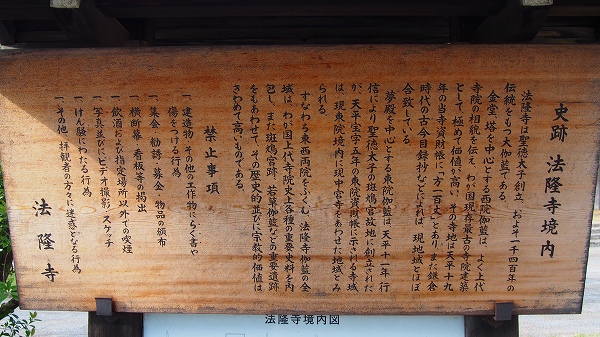 史跡 法隆寺境内
法隆寺は聖徳太子創立、およそ一千四百年の
伝統をもつ大伽藍である。
金堂、塔を中心とする西院伽藍は、よく上代
寺院の相貌を伝え、わが国現存最古の寺院建築
として極めて価値が高い。その寺地は天平十九
年の当寺資財帳に「方一百丈」とあり、また鎌倉
時代の古今目録抄しるすところは、現地域とほぼ
合致している。
夢殿を中心とする東院伽藍は天平十一年行
信により聖徳太子の斑鳩宮故地に創立された
が、天平宝字五年の東院資財帳に示される寺域
は、現東院境内に現中宮寺をあわせた地域とみ
られる。
すなわち東西両院をふくん法隆寺伽藍の全
域は、わが国上代寺院史上各種の重要史料を内
包し、また斑鳩宮跡、若草伽藍などの重要遺跡
をもあわせて、その歴史的並びに宗教的価値は
きわめて高いものである。
禁止事項
一、建造物、その他の工作物にらく書や
傷をつける行為
一、集会、勧誘、募金、物品の頒布
一、横断幕、看板等の掲出
一、飲酒および指定場所以外での喫煙
一、写真並びにビデオ撮影、スケッチ
一、けん騒にわたる行為
一、その他、拝観者の方々に迷惑となる行為
法隆寺
法隆寺境内図